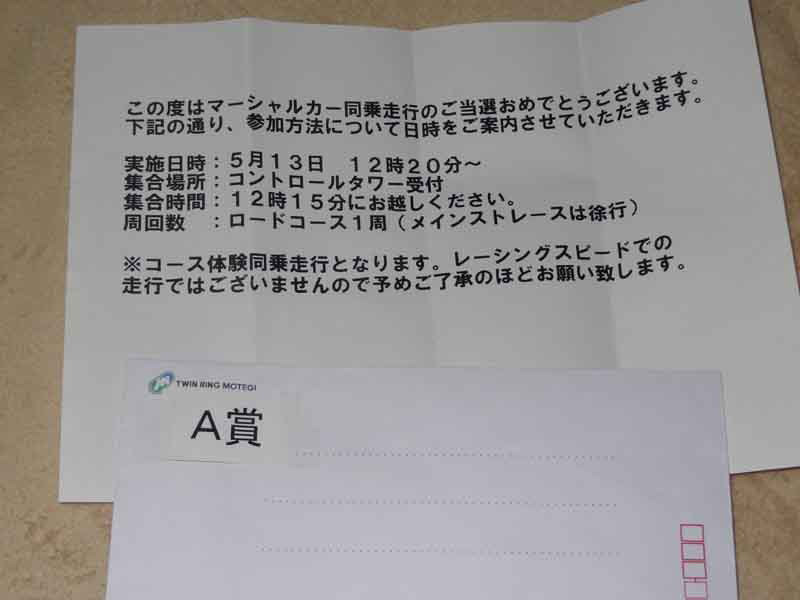 この度はマーシャルカー同乗走行のご当選おめでとうございます。
下記の通り、参加方法について日時をご案内させていただきます。
実施日時：５月１３日　１２時２０分～
集合場所：コントロールタワー受付
集合時間：１２時１５分にお越しください。
周回数　：ロードコース１周（メインストレースは徐行）
※コース体験同乗走行となります。レーシングスピードでの
走行ではございませんので予めご了承のほどお願い致します。
TWIN RING MOTEGI
Ａ賞